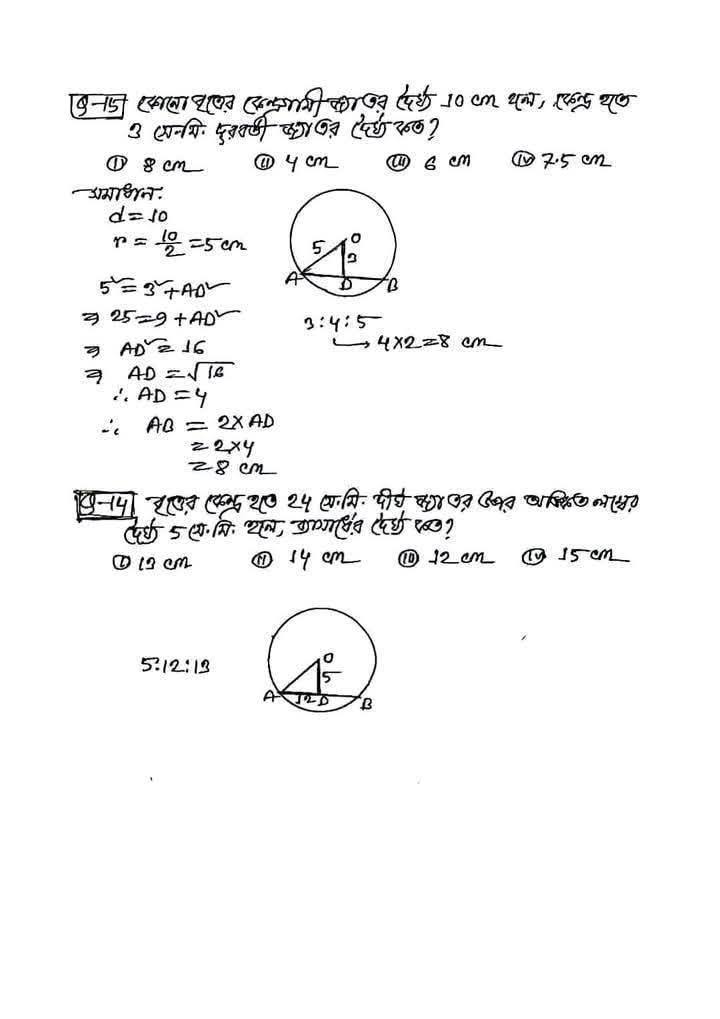 Q-15 কোনো বৃত্তের কেন্দ্রগামী জ্যা এর দৈর্ঘ্য 10 cm হলে, কেন্দ্র হতে
3 সে.মি. দূরবর্তী জ্যা এর দৈর্ঘ্য কত?
(i) 8 cm (ii) 4 cm (iii) 6 cm (iv) 7.5 cm
সমাধান:
d = 10
r = 10/2 = 5 cm
5² = 3² + AD²
⇒ 25 = 9 + AD²
⇒ AD² = 16
⇒ AD = √16
∴ AD = 4
∴ AB = 2 × AD
= 2 × 4
= 8 cm
O
5
3
A
D
B
3 : 4 : 5
→ 4 × 2 = 8 cm
Q-14 বৃত্তের কেন্দ্র হতে 24 সে.মি. দীর্ঘ জ্যা এর উপর অঙ্কিত লম্বের
দৈর্ঘ্য 5 সে.মি. হলে, ব্যাসার্ধের দৈর্ঘ্য কত?
(i) 13 cm (ii) 14 cm (iii) 12 cm (iv) 15 cm
5:12:13
O
5
A
12
D
B